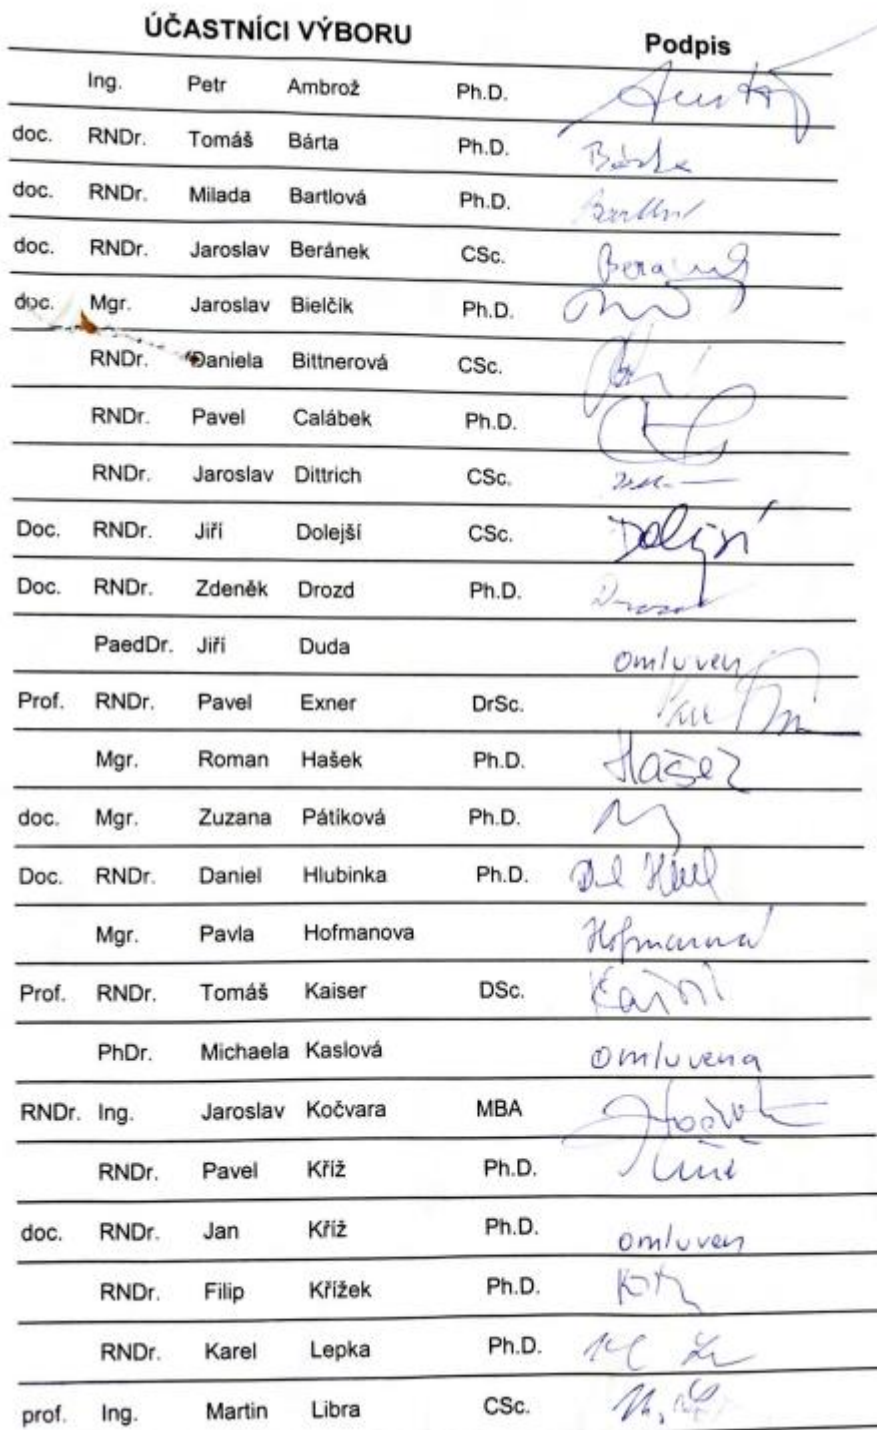 ÚČASTNÍCI VÝBORU Podpis
Ing. Petr Ambrož Ph.D.
doc. RNDr. Tomáš Bárta Ph.D. Bárta
doc. RNDr. Milada Bartlová Ph.D.
doc. RNDr. Jaroslav Beránek CSc. Beránek
doc. Mgr. Jaroslav Bielčík Ph.D.
RNDr. Daniela Bittnerová CSc.
RNDr. Pavel Calábek Ph.D.
RNDr. Jaroslav Dittrich CSc.
Doc. RNDr. Jiří Dolejší CSc. Dolejší
Doc. RNDr. Zdeněk Drozd Ph.D. Drozd
PaedDr. Jiří Duda omluven
Prof. RNDr. Pavel Exner DrSc.
Mgr. Roman Hašek Ph.D. Hašek
doc. Mgr. Zuzana Pátíková Ph.D.
Doc. RNDr. Daniel Hlubinka Ph.D.
Mgr. Pavla Hofmanova Hofmanová
Prof. RNDr. Tomáš Kaiser DSc.
PhDr. Michaela Kaslová omluvena
RNDr. Ing. Jaroslav Kočvara MBA
RNDr. Pavel Kříž Ph.D.
doc. RNDr. Jan Kříž Ph.D. omluven
RNDr. Filip Křížek Ph.D.
RNDr. Karel Lepka Ph.D.
prof. Ing. Martin Libra CSc.